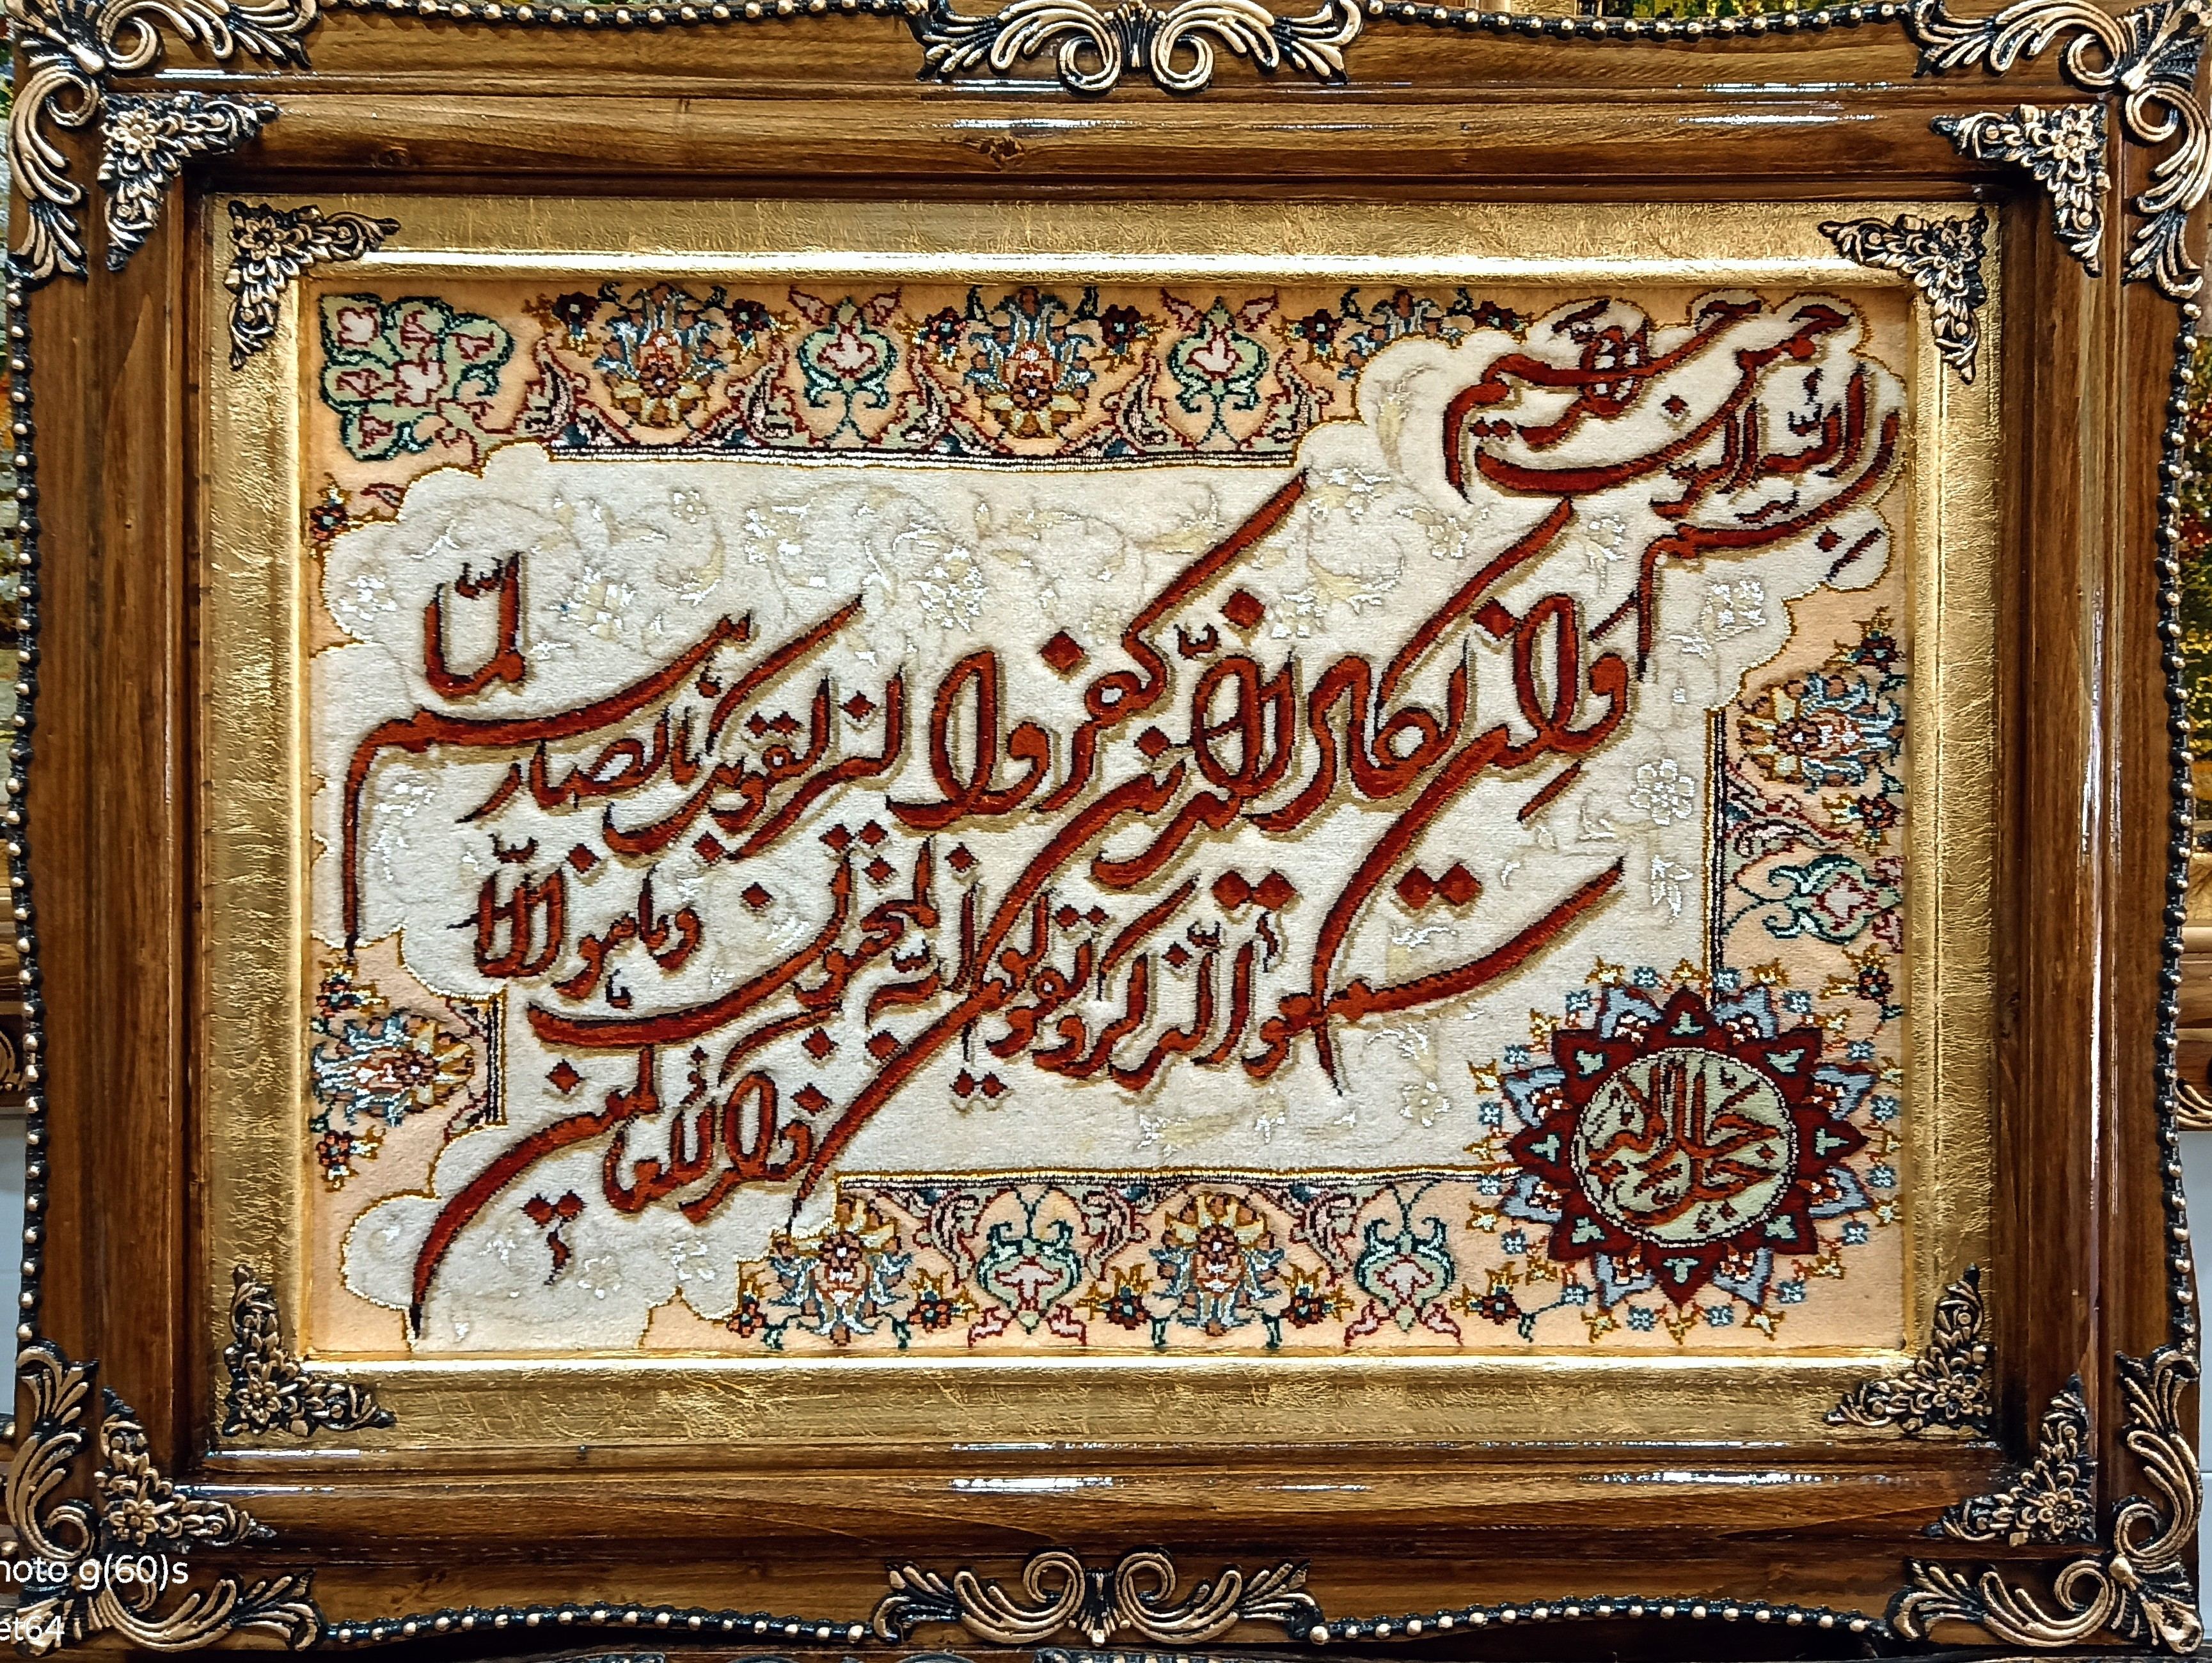 بسم الله الرحمن الرحیم
وَاِن یکاد الّذین کفروا لیزلقونک بابصارهم لمّا
سمعوا الذّکر و یقولون انّه لمجنون و ما هو الّا
ذکر للعالمین
جل جلاله
hoto g(60)s
et64